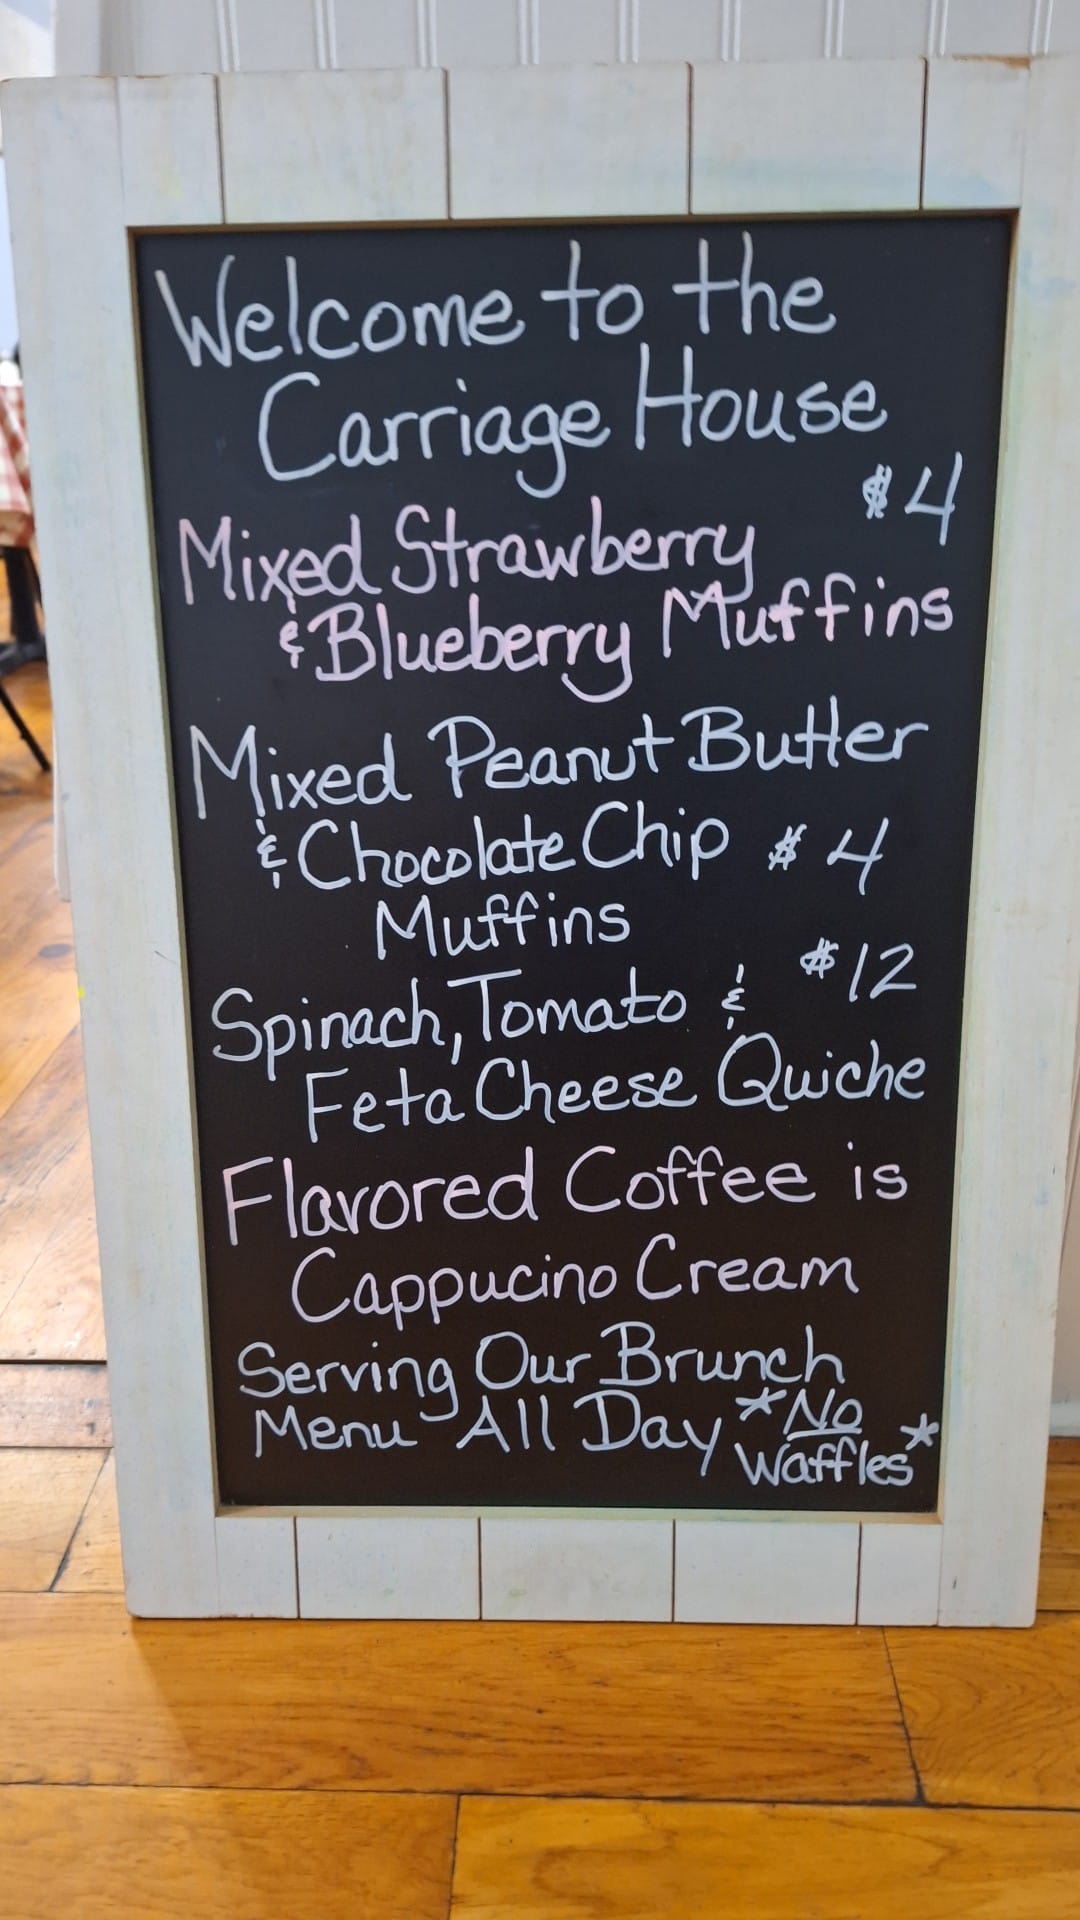 Welcome to the
Carriage House
$4
Mixed Strawberry
& Blueberry Muffins
Mixed Peanut Butter
& Chocolate Chip $4
Muffins
$12
Spinach, Tomato &
Feta Cheese Quiche
Flavored Coffee is
Cappucino Cream
Serving Our Brunch
Menu All Day *No
Waffles*